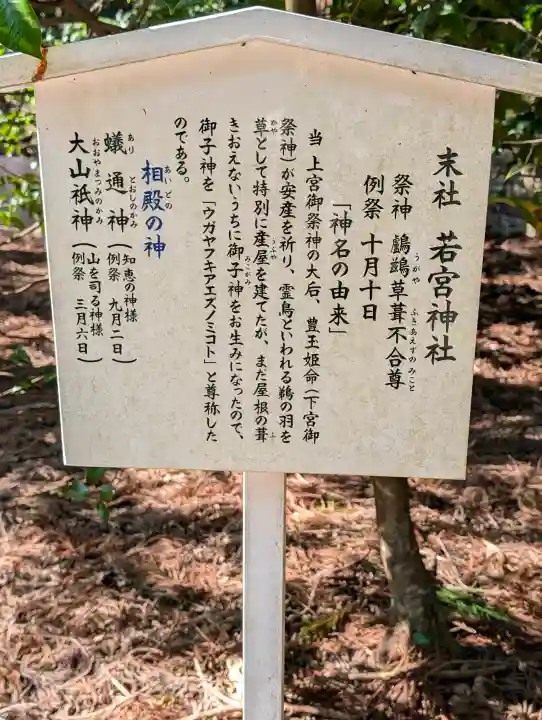 末社 若宮神社
祭神 鸕鷀草葺不合尊
うがや ふきあえずのみこと
例祭 十月十日
「神名の由来」
当 上宮御祭神の大后、豊玉姫命(下宮御
祭神)が安産を祈り、霊鳥といわれる鵜の羽を
草として特別に産屋を建てたが、まだ屋根の葺
かや うぶや ふ
きおえないうちに御子神をお生みになったので、
みこがみ
御子神を「ウガヤフキアエズノミコト」と尊称した
のである。
相殿の神
あいどの
蟻通神(知恵の神様
あり とおしのかみ
例祭 九月二日)
大山祇神(山を司る神様
おおやまつみのかみ
例祭 三月六日)